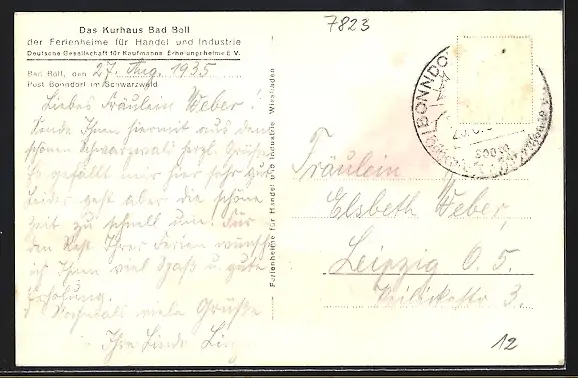 7823
Das Kurhaus Bad Boll
der Ferienheime für Handel und Industrie
Deutsche Gesellschaft für Kaufmanns-Erholungsheime E.V.
Bad Boll, den 27. Aug. 1935
Post Bonndorf im Schwarzwald
Liebes Fräulein Weber!
Sende Ihnen hiermit aus dem
schönen Schwarzwald herzl. Grüße.
Es gefällt mir hier sehr gut
leider geht aber die schöne
Zeit zu schnell um. Für
den Rest Ihrer Ferien wünsche
ich Ihnen viel Spaß u. gute
Erholung.
Nochmals viele Grüße
Ihre Linde
Ferienheime für Handel und Industrie Wiesbaden
BONNDORF
800 m
Fräulein
Elsbeth Weber,
Leipzig O. 5.
3.
12